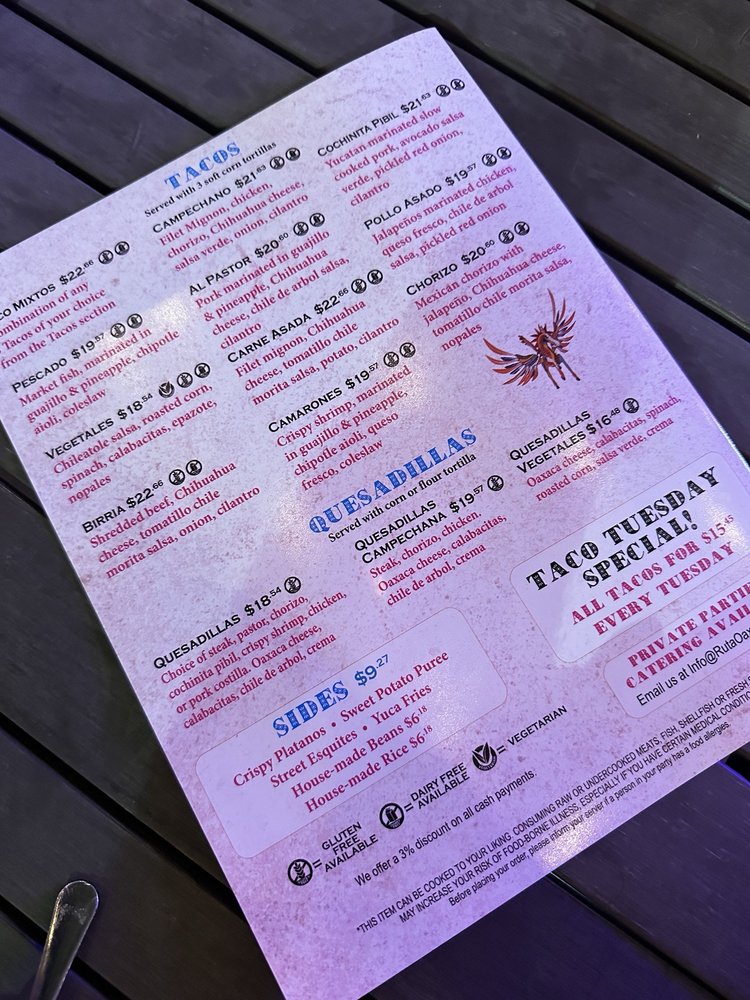 TACOS
Served with 3 soft corn tortillas
CO MIXTOS $22.66
ombination of any
Tacos of your choice
from the Tacos section
PESCADO $19.57
Market fish, marinated in
guajillo & pineapple, chipotle
aioli, coleslaw
VEGETALES $18.54
Chileatole salsa, roasted corn,
spinach, calabacitas, epazote,
nopales
BIRRIA $22.66
Shredded beef, Chihuahua
cheese, tomatillo chile
morita salsa, onion, cilantro
CAMPECHANO $21.63
Filet Mignon, chicken,
chorizo, Chihuahua cheese,
salsa verde, onion, cilantro
AL PASTOR $20.60
Pork marinated in guajillo
& pineapple, Chihuahua
cheese, chile de arbol salsa,
cilantro
CARNE ASADA $22.66
Filet mignon, Chihuahua
cheese, tomatillo chile
morita salsa, potato, cilantro
CAMARONES $19.57
Crispy shrimp, marinated
in guajillo & pineapple,
chipotle aioli, queso
fresco, coleslaw
COCHINITA PIBIL $21.63
Yucatan marinated slow
cooked pork, avocado salsa
verde, pickled red onion,
cilantro
POLLO ASADO $19.57
Jalapeños marinated chicken,
queso fresco, chile de arbol
salsa, pickled red onion
CHORIZO $20.60
Mexican chorizo with
jalapeño, Chihuahua cheese,
tomatillo chile morita salsa,
nopales
QUESADILLAS
Served with corn or flour tortilla
QUESADILLAS $18.54
Choice of steak, pastor, chorizo,
cochinita pibil, crispy shrimp, chicken,
or pork costilla. Oaxaca cheese,
calabacitas, chile de arbol, crema
QUESADILLAS
CAMPECHANA $19.57
Steak, chorizo, chicken,
Oaxaca cheese, calabacitas,
chile de arbol, crema
QUESADILLAS
VEGETALES $16.48
Oaxaca cheese, calabacitas, spinach,
roasted corn, salsa verde, crema
SIDES $9.27
Crispy Platanos • Sweet Potato Puree
Street Esquites • Yuca Fries
House-made Beans $6.18
House-made Rice $6.18
TACO TUESDAY
SPECIAL!
ALL TACOS FOR $15.45
EVERY TUESDAY
PRIVATE PARTIE
CATERING AVAI
Email us at Info@RutaOa
= GLUTEN
FREE
AVAILABLE
= DAIRY FREE
AVAILABLE
= VEGETARIAN
We offer a 3% discount on all cash payments.
*THIS ITEM CAN BE COOKED TO YOUR LIKING. CONSUMING RAW OR UNDERCOOKED MEATS, FISH, SHELLFISH OR FRESH
MAY INCREASE YOUR RISK OF FOOD-BORNE ILLNESS, ESPECIALLY IF YOU HAVE CERTAIN MEDICAL CONDITIO
Before placing your order, please inform your server if a person in your party has a food allergies.